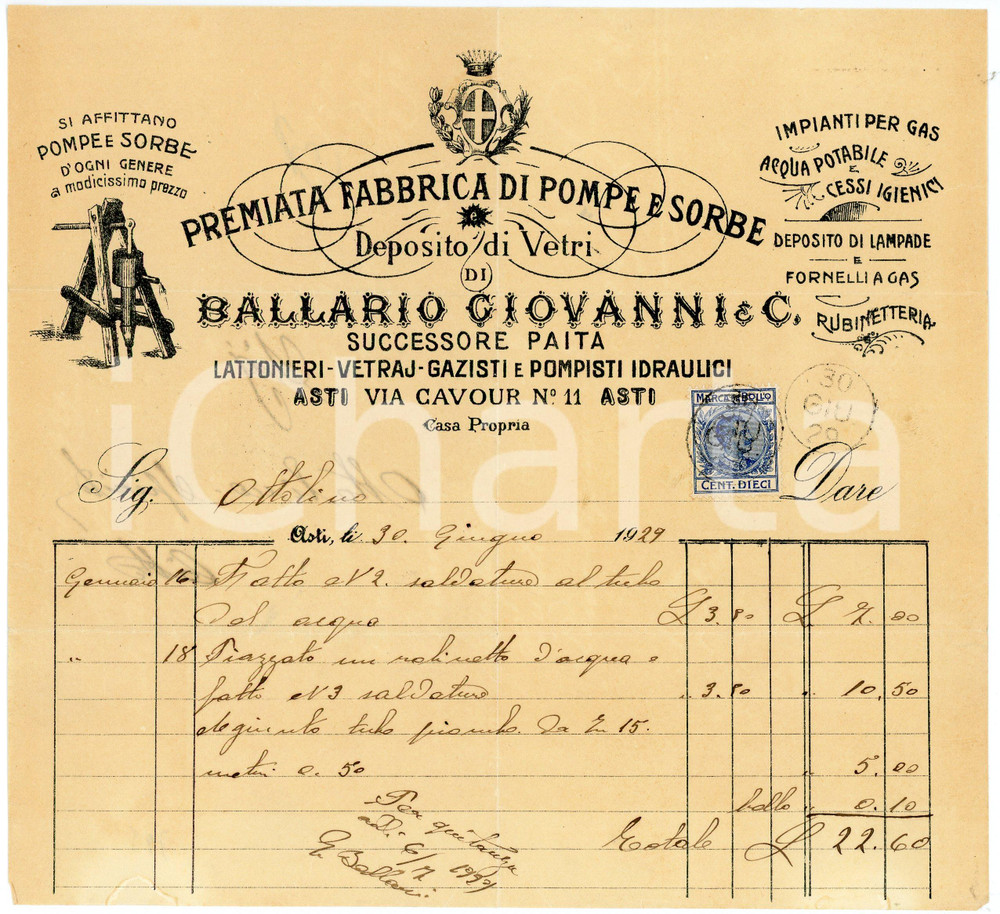 SI AFFITTANO
POMPE E SORBE
D'OGNI GENERE
a modicissimo prezzo
PREMIATA FABBRICA DI POMPE E SORBE
Deposito di Vetri
DI
BALLARIO GIOVANNI & C.
SUCCESSORE PAITA
LATTONIERI-VETRAJ-GAZISTI E POMPISTI IDRAULICI
ASTI VIA CAVOUR No. 11 ASTI
Casa Propria
IMPIANTI PER GAS
ACQUA POTABILE
E
CESSI IGIENICI
DEPOSITO DI LAMPADE
E
FORNELLI A GAS
RUBINETTERIA
MARCA DA BOLLO
CENT. DIECI
30
GIU
iCharta
Sig. Ottolino Dare
Asti, li 30 Giugno 1929
Gennaio 16 Fatto N 2. saldature al tubo
del acqua £ 3.50 £ 7.00
" 18 Piazzato un robinetto d'acqua e
fatto N 3 saldature " 3.50 " 10,50
tubo piombo da m 15.
metri 0.50 " 5.00
bollo " 0.10
Totale £ 22.60
Per quitanza
add. 6/7 1929
G. Ballario